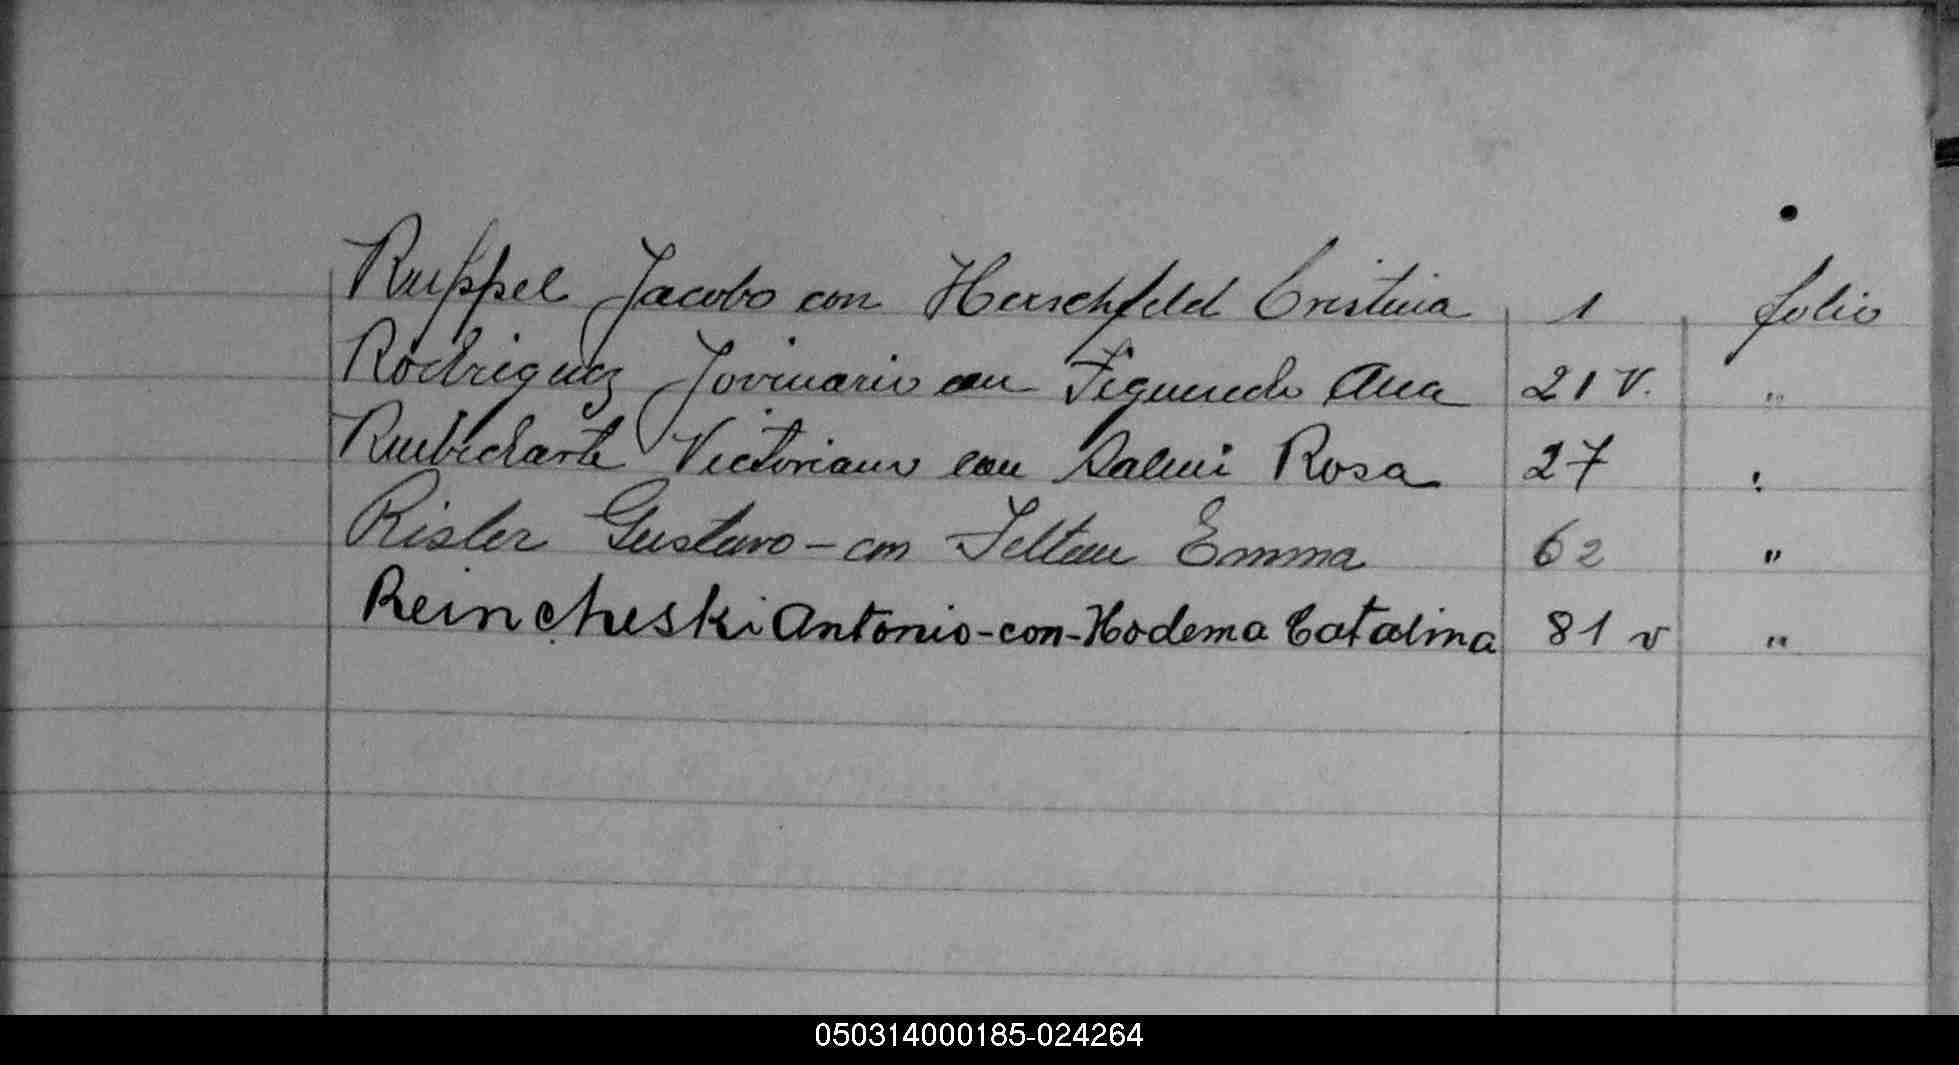 Ruppel Jacobo con Herschfeld Cristina 1 folio
Rodriguez Jovinario con Figueredo Ana 21 v. "
Rubidarte Victoriano con Salmi Rosa 27 "
Risler Gustavo - con Feltau Emma 62 "
Reincheski Antonio - con - Hodema Catalina 81 v "
050314000185-024264